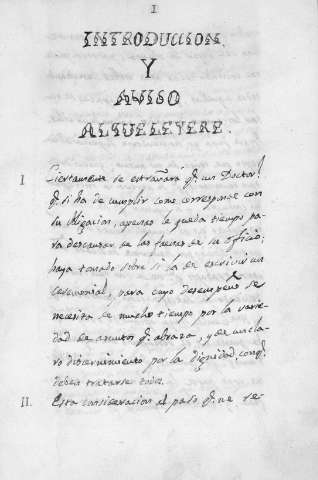 I
INTRODUCCION
Y
AVISO
AL QUE LEYERE.
I. Ciertamente se estrañará q.e un Doctor.l
q.e si ha de cumplir como corresponde con
su obligacion, apenas le queda tiempo pa-
ra descansar de las faenas de su officio,
haya tomado sobre si la de escrivir un
ceremonial, para cuyo desempeño se
necesita de mucho tiempo por la varie-
dad de asuntos q.e abraza, y de un cla-
ro discernimiento por la dignidad, conq.e
deben tratarse todos.
II. Esta consideracion al paso q.e me re-